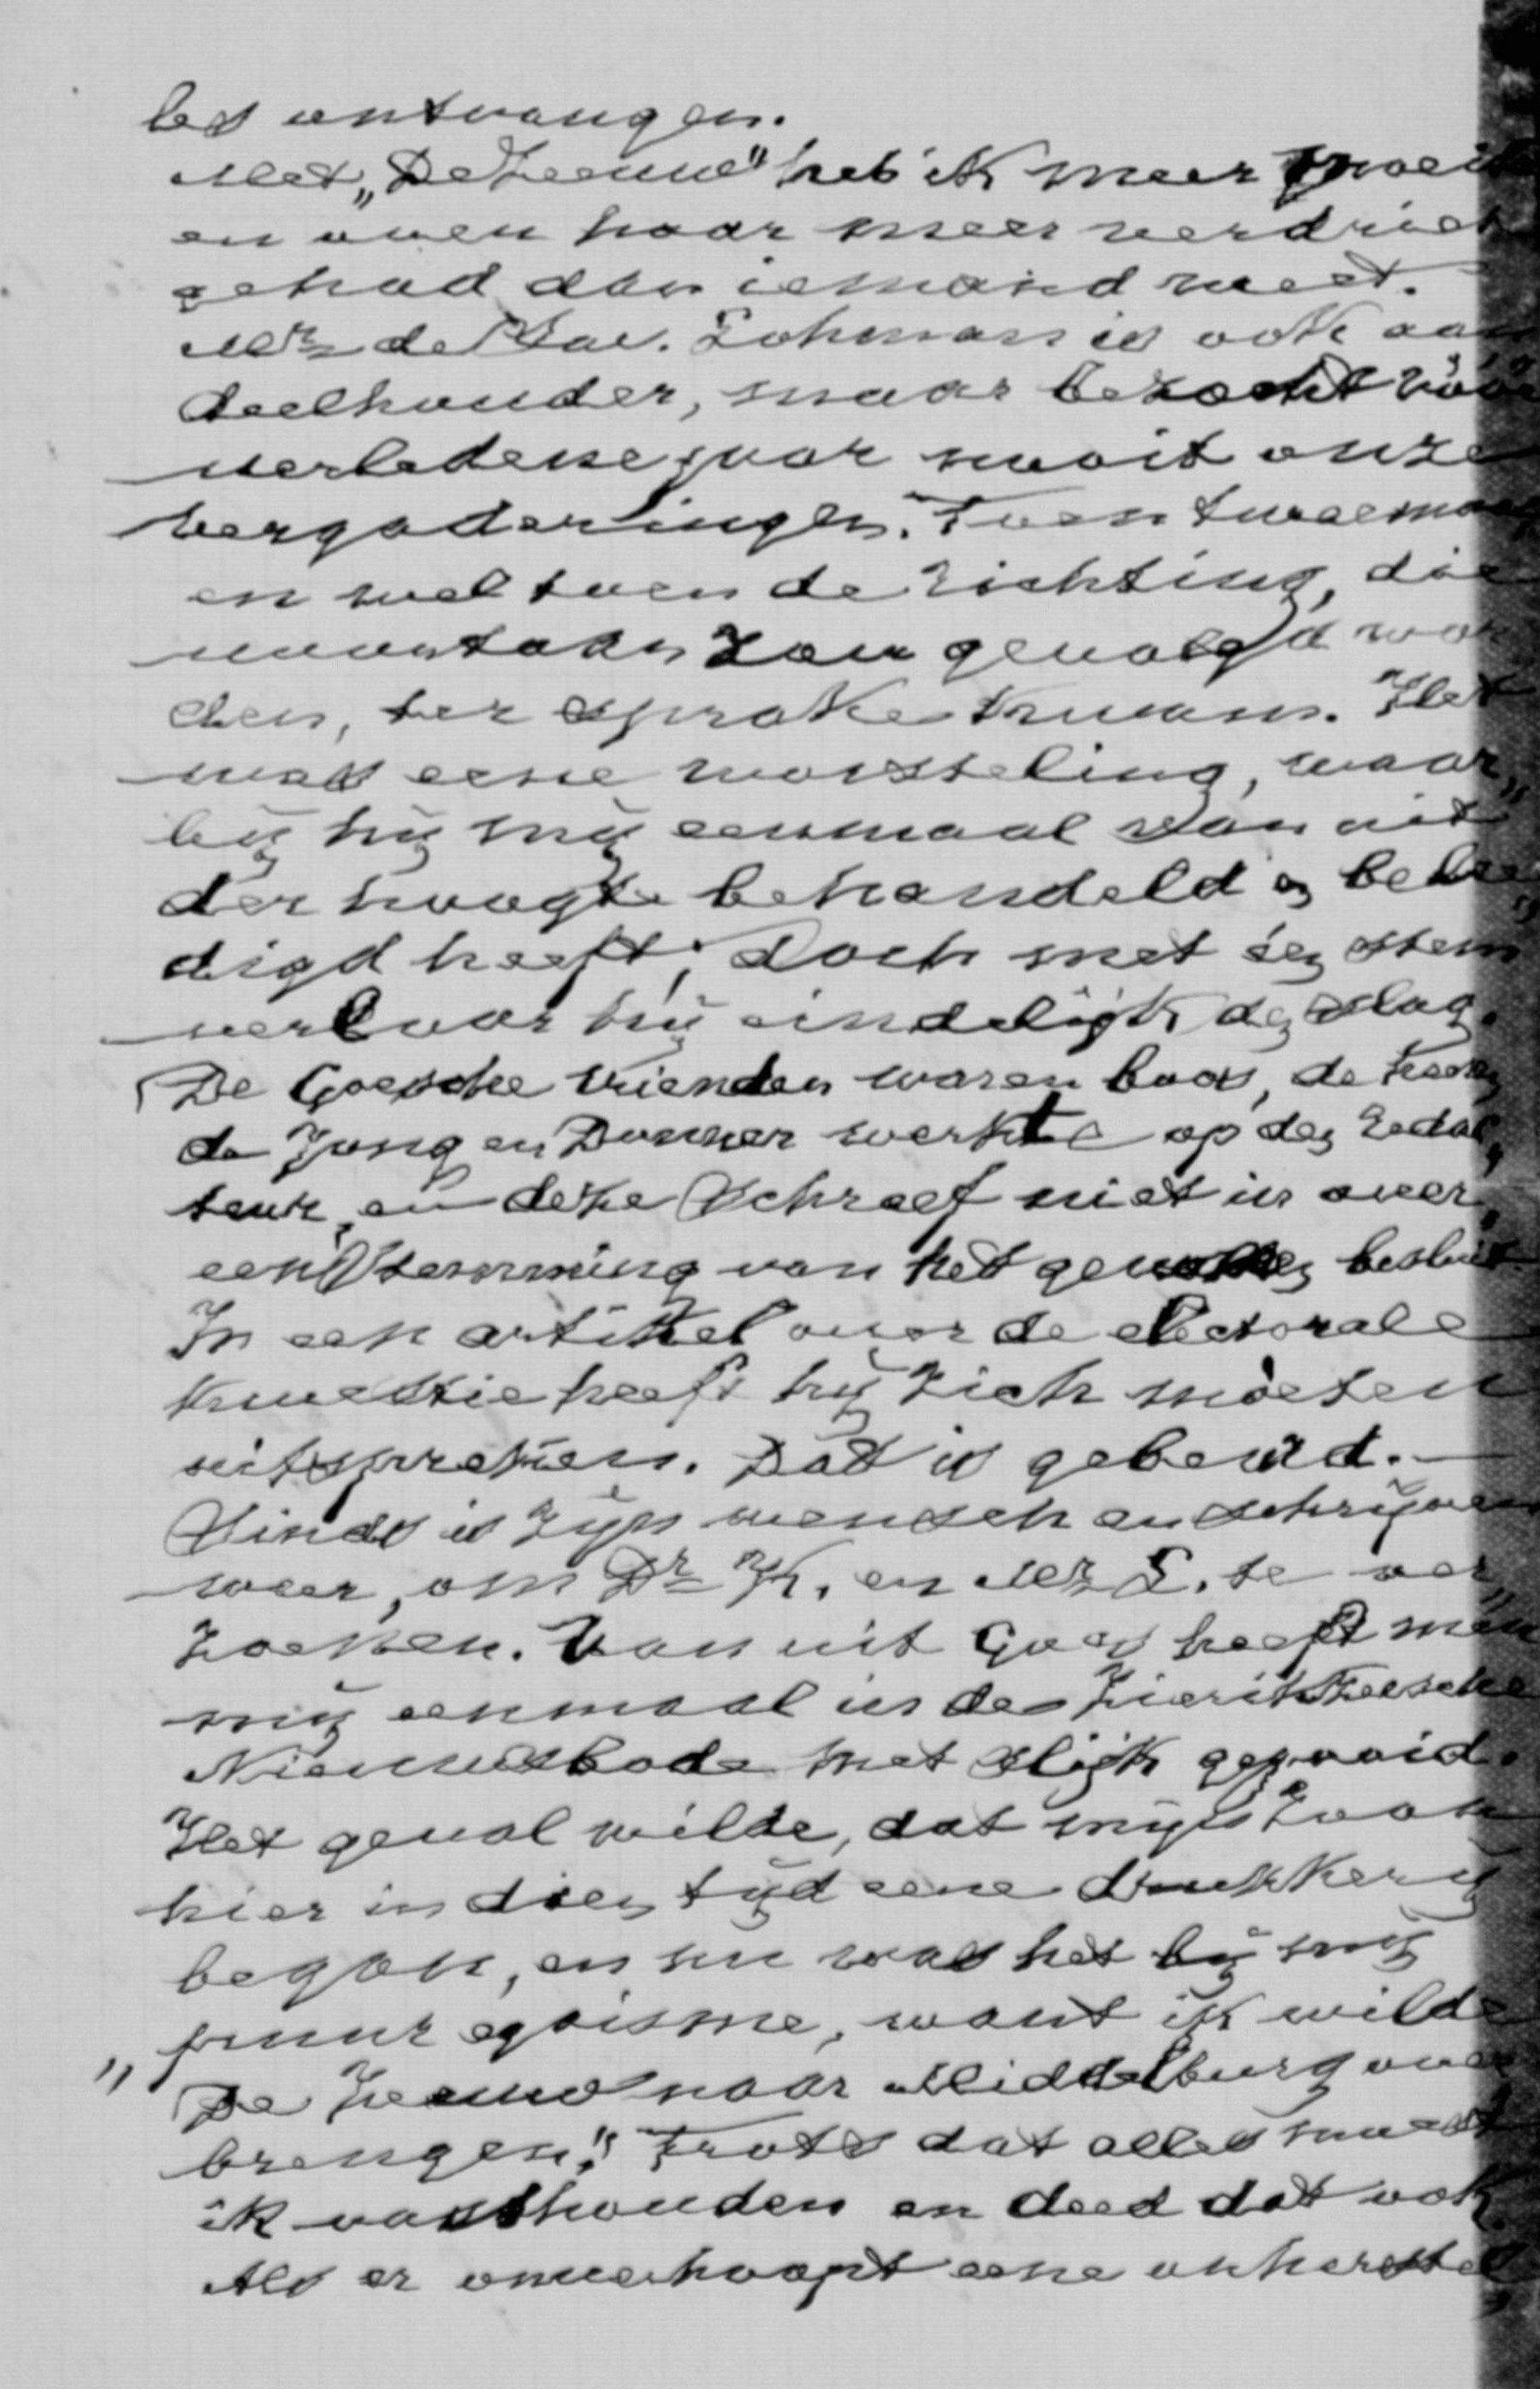 les ontvangen.
Met „De Zeeuw" heb ik meer moeite
en over haar meer verdriet
gehad dan iemand weet.
Mr de Sav. Lohman is ook aan
deelhouder, maar bezocht vóór
verledene jaar nooit onze
vergaderingen. Toen tweemaal
en wel toen de richting, die
voortaan zou gevolgd wor
den, ter sprake kwam. Het
was eene worsteling, waar„
bij hij mij eenmaal van uit
der hoogte behandeld en belee„
digd heeft; doch met één stem
verloor hij eindelijk den slag.
De Goesche vrienden waren boos, de
de Jong en Donner werkte op den redac„
teur, en deze schreef niet in over„
eenstemming van het genomen besluit
In een artikel over de electorale
kwestie heeft hij zich moeten
uitspreken. Dat is gebeurd.—
Sinds is zijn wensch en schrijven
weer, om Dr K. en Mr L. te ver„
zoenen. Van uit Goes heeft men
mij eenmaal in de Zierikzeesche
Nieuwsbode met slijk gegooid.
Het geval wilde, dat mijn zoon
hier in dien tijd eene drukkerij
begon, en nu was het bij mij
puur egoisme, want ik wilde
„De Zeeuw naar Middelburg over
brengen." Trots dat alles moest
ik vasthouden en deed dat ook.
Als er onverhoopt eene onherstel„